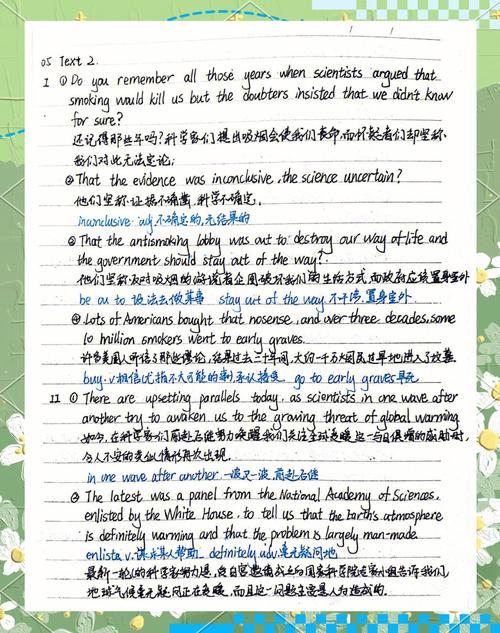 05 Text 2.
I ① Do you remember all those years when scientists argued that
smoking would kill us but the doubters insisted that we didn't know
for sure?
还记得那些年吗?科学家们提出吸烟会使我们丧命,而怀疑者们却坚称
我们对此无法定论;
② That the evidence was inconclusive, the science uncertain?
他们坚称证据不确凿,科学不确定。
inconclusive adj.不确定的,无结果的
③ That the antismoking lobby was out to destroy our way of life and
the government should stay out of the way?
他们坚称反对吸烟的游说者企图破坏我们的生活方式,而政府应该置身事外
be out to 设法去做某事 stay out of the way 不干涉,置身事外
④ Lots of Americans bought that nosense, and over three decades, some
10 million smokers went to early graves.
许多美国人听信了那些谬论,结果过去三十年间,大约一千万烟民过早地进入了坟墓
buy.v.相信(尤指不大可能的事),承认接受. go to early graves早死
II ① There are upsetting parallels today, as scientists in one wave after
another try to awaken us to the growing threat of global warming
如今,在科学家们前赴后继努力唤醒我们关注全球变暖这一与日俱增的威胁时,
令人不安的类似情形再次出现.
in one wave after another 一波又一波,前赴后继
② The latest was a panel from the National Academy of Sciences,
enlisted by the White House, to tell us that the Earth's atmosphere
is definitely warming and that the problem is largely man-made.
enlist v.谋求某人帮助. definitely adv.毫无疑问地
最新一轮的科学家努力是,
地球气候毫无疑问正在变暖,而且这一问题主要是人为造成的.